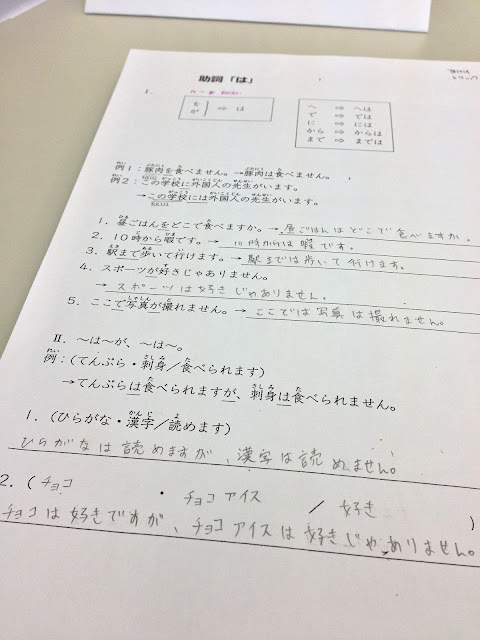 助詞「は」
I.
を
が
⇨ は
へ ⇨ へは
で ⇨ では
に ⇨ には
から ⇨ からは
まで ⇨ までは
例1：豚肉を食べません。→豚肉は食べません。
例2：この学校に外国人の先生がいます。
→この学校には外国人の先生がいます。
1．昼ごはんをどこで食べますか。→ 昼ごはんはどこで食べますか。
2．10時から暇です。→ 10時からは暇です。
3．駅まで歩いて行けます。→ 駅までは歩いて行けます。
4．スポーツが好きじゃありません。
→ スポーツは好きじゃありません。
5．ここで写真が撮れません。→ ここでは写真は撮れません。
II．～は～が、～は～。
例：（てんぷら・刺身／食べられます）
→てんぷらは食べられますが、刺身は食べられません。
1．（ひらがな・漢字／読めます）
ひらがなは読めますが、漢字は読めません。
2．（チョコ ・ チョコアイス ／ 好き ）
チョコは好きですが、チョコアイスは好きじゃありません。